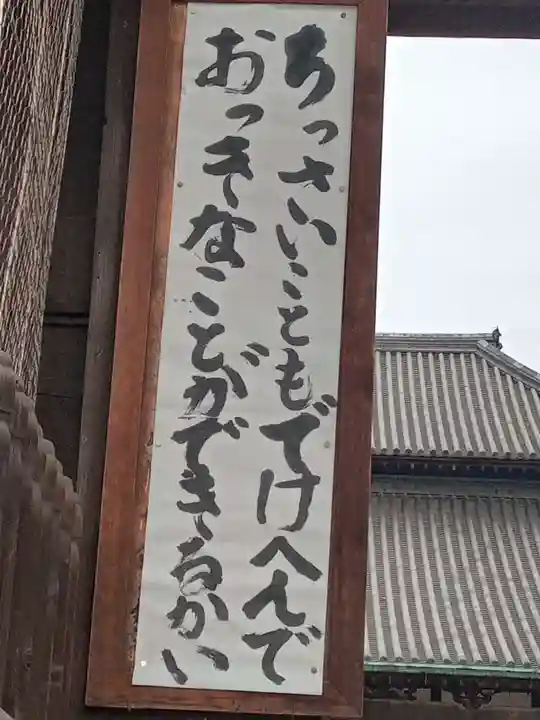 ちっさいこともでけへんで
おっきなことができるかい